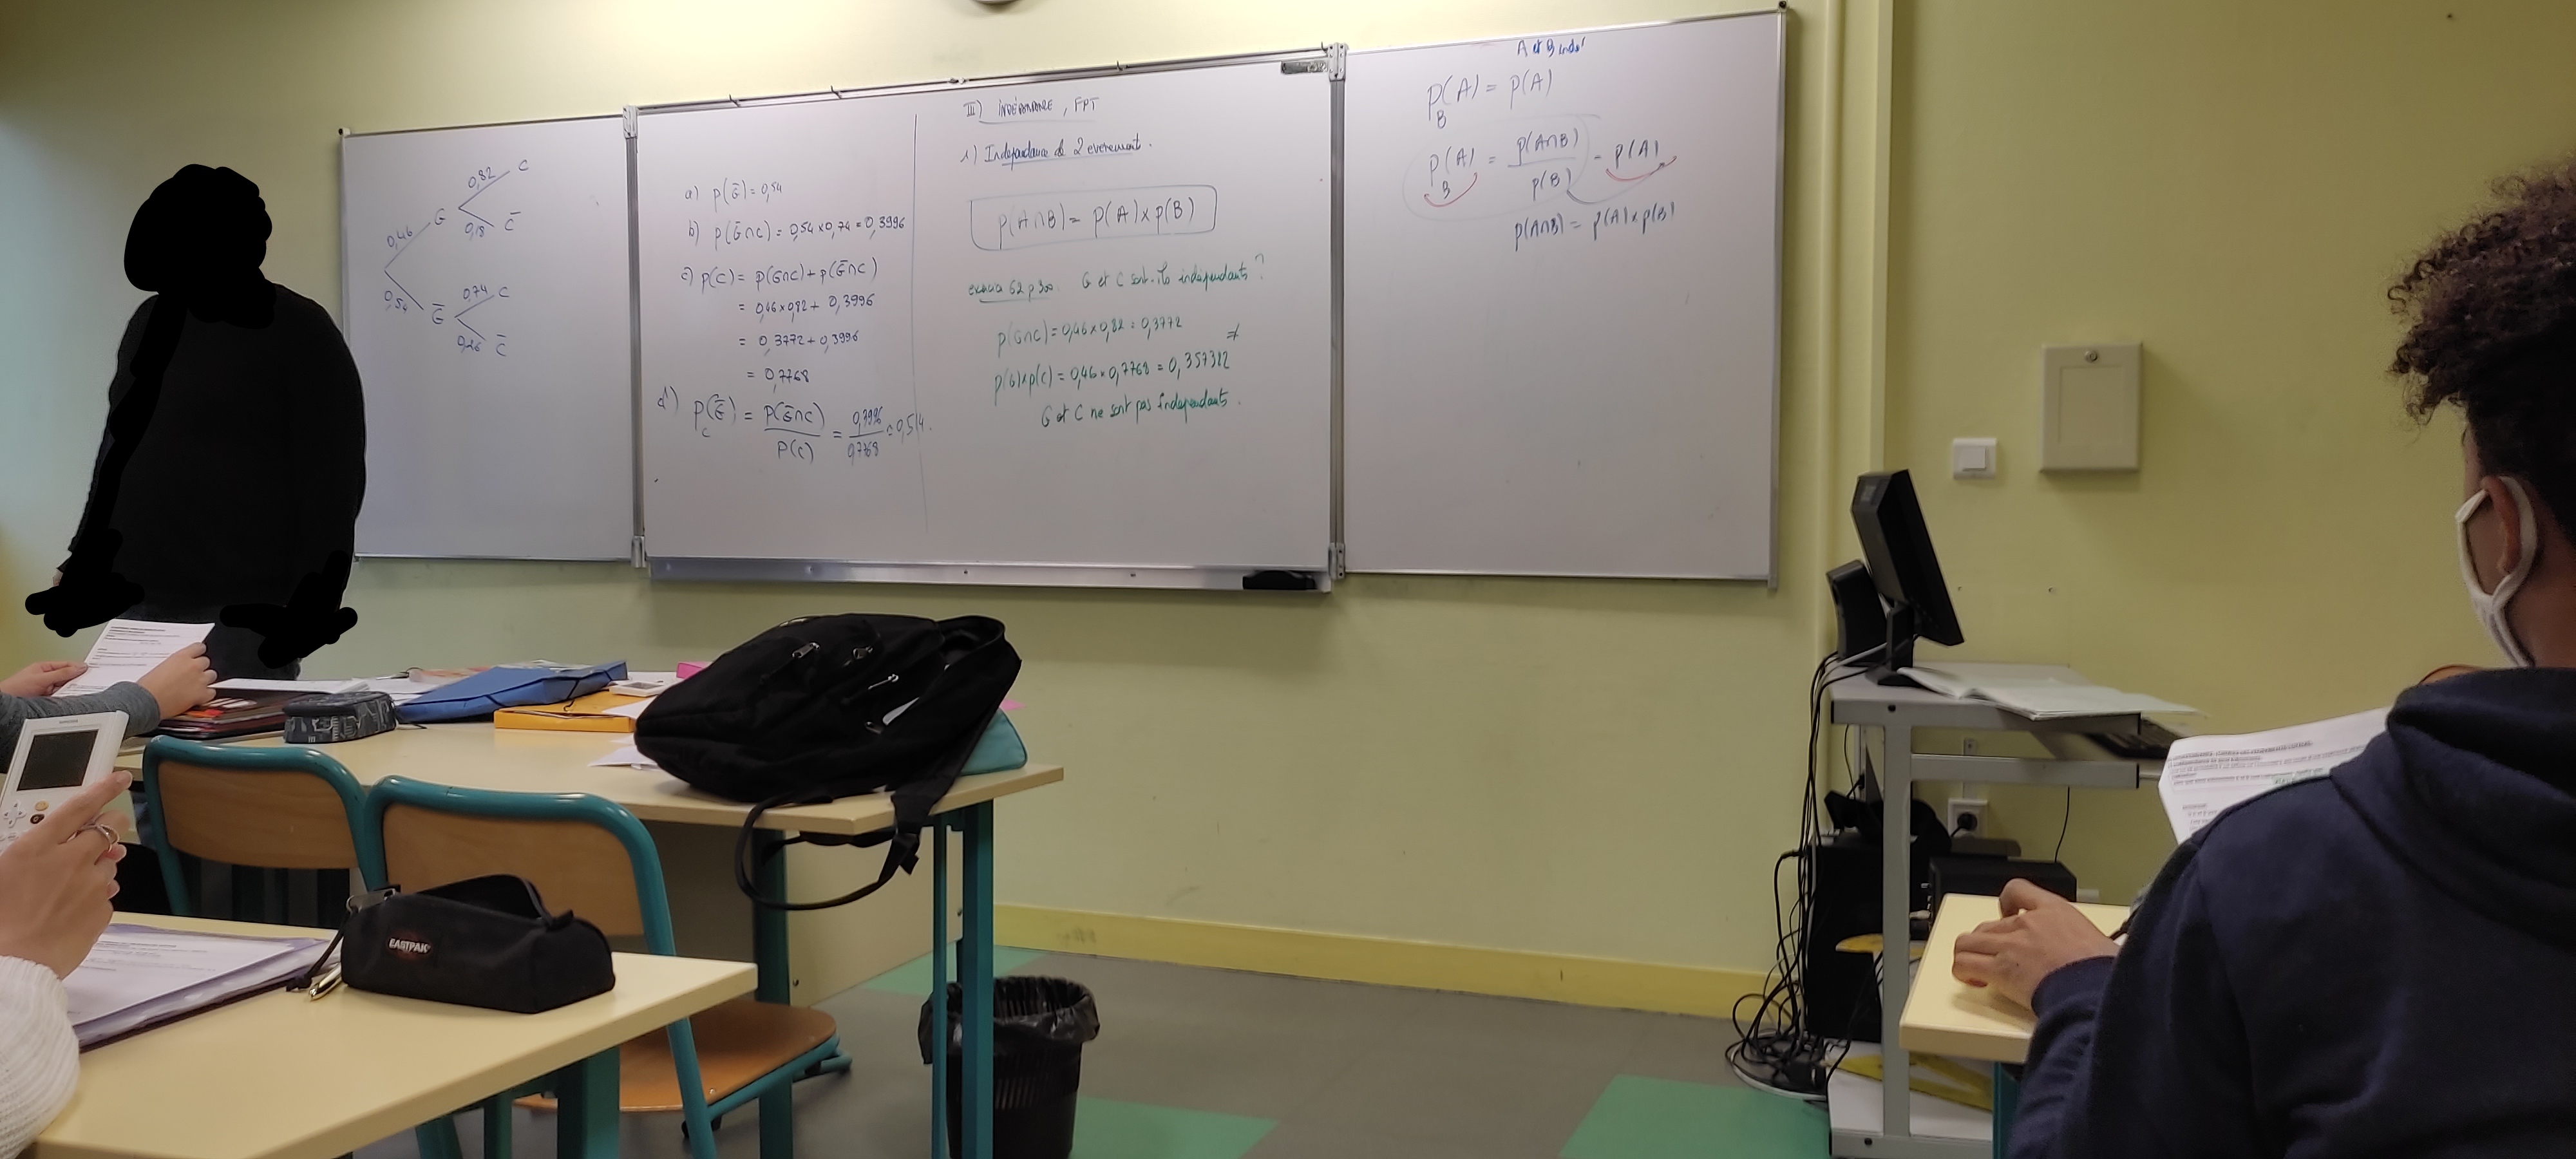 0,82 C
0,46 G
0,18 C̄
0,54 Ḡ
0,74 C
0,26 C̄
a) p(Ḡ) = 0,54
b) p(Ḡ∩C) = 0,54 × 0,74 = 0,3996
c) p(C) = p(G∩C) + p(Ḡ∩C)
= 0,46 × 0,82 + 0,3996
= 0,3772 + 0,3996
= 0,7768
d) P_C(Ḡ) = P(Ḡ∩C) / P(C) = 0,3996 / 0,7768 = 0,514.
III) INDÉPENDANCE, FPT
1) Indépendance de 2 evenement.
p(A∩B) = p(A) × p(B)
exercice 62 p 300. G et C sont-ils indépendants ?
p(G∩C) = 0,46 × 0,82 = 0,3772
≠
p(G) × p(C) = 0,46 × 0,7768 = 0,357312
G et C ne sont pas indépendants.
A et B indé
P_B(A) = p(A)
P_B(A) = p(A∩B) / p(B) = p(A)
p(A∩B) = p(A) × p(B)
EASTPAK